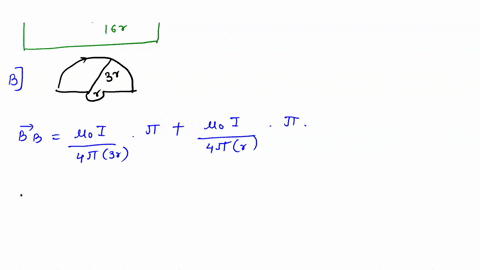 16r
B]
3r
r
\vec{B}_B = \frac{μ_0 I}{4π(3r)} · π + \frac{μ_0 I}{4π(r)} · π.